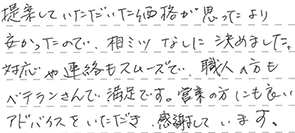 提案していただいた価格が思ったより
安かったので、相ミツなしに決めました。
対応や連絡もスムーズで、職人の方も
ベテランさんで満足です。営業の方にも良い
アドバイスをいただき、感謝しています。